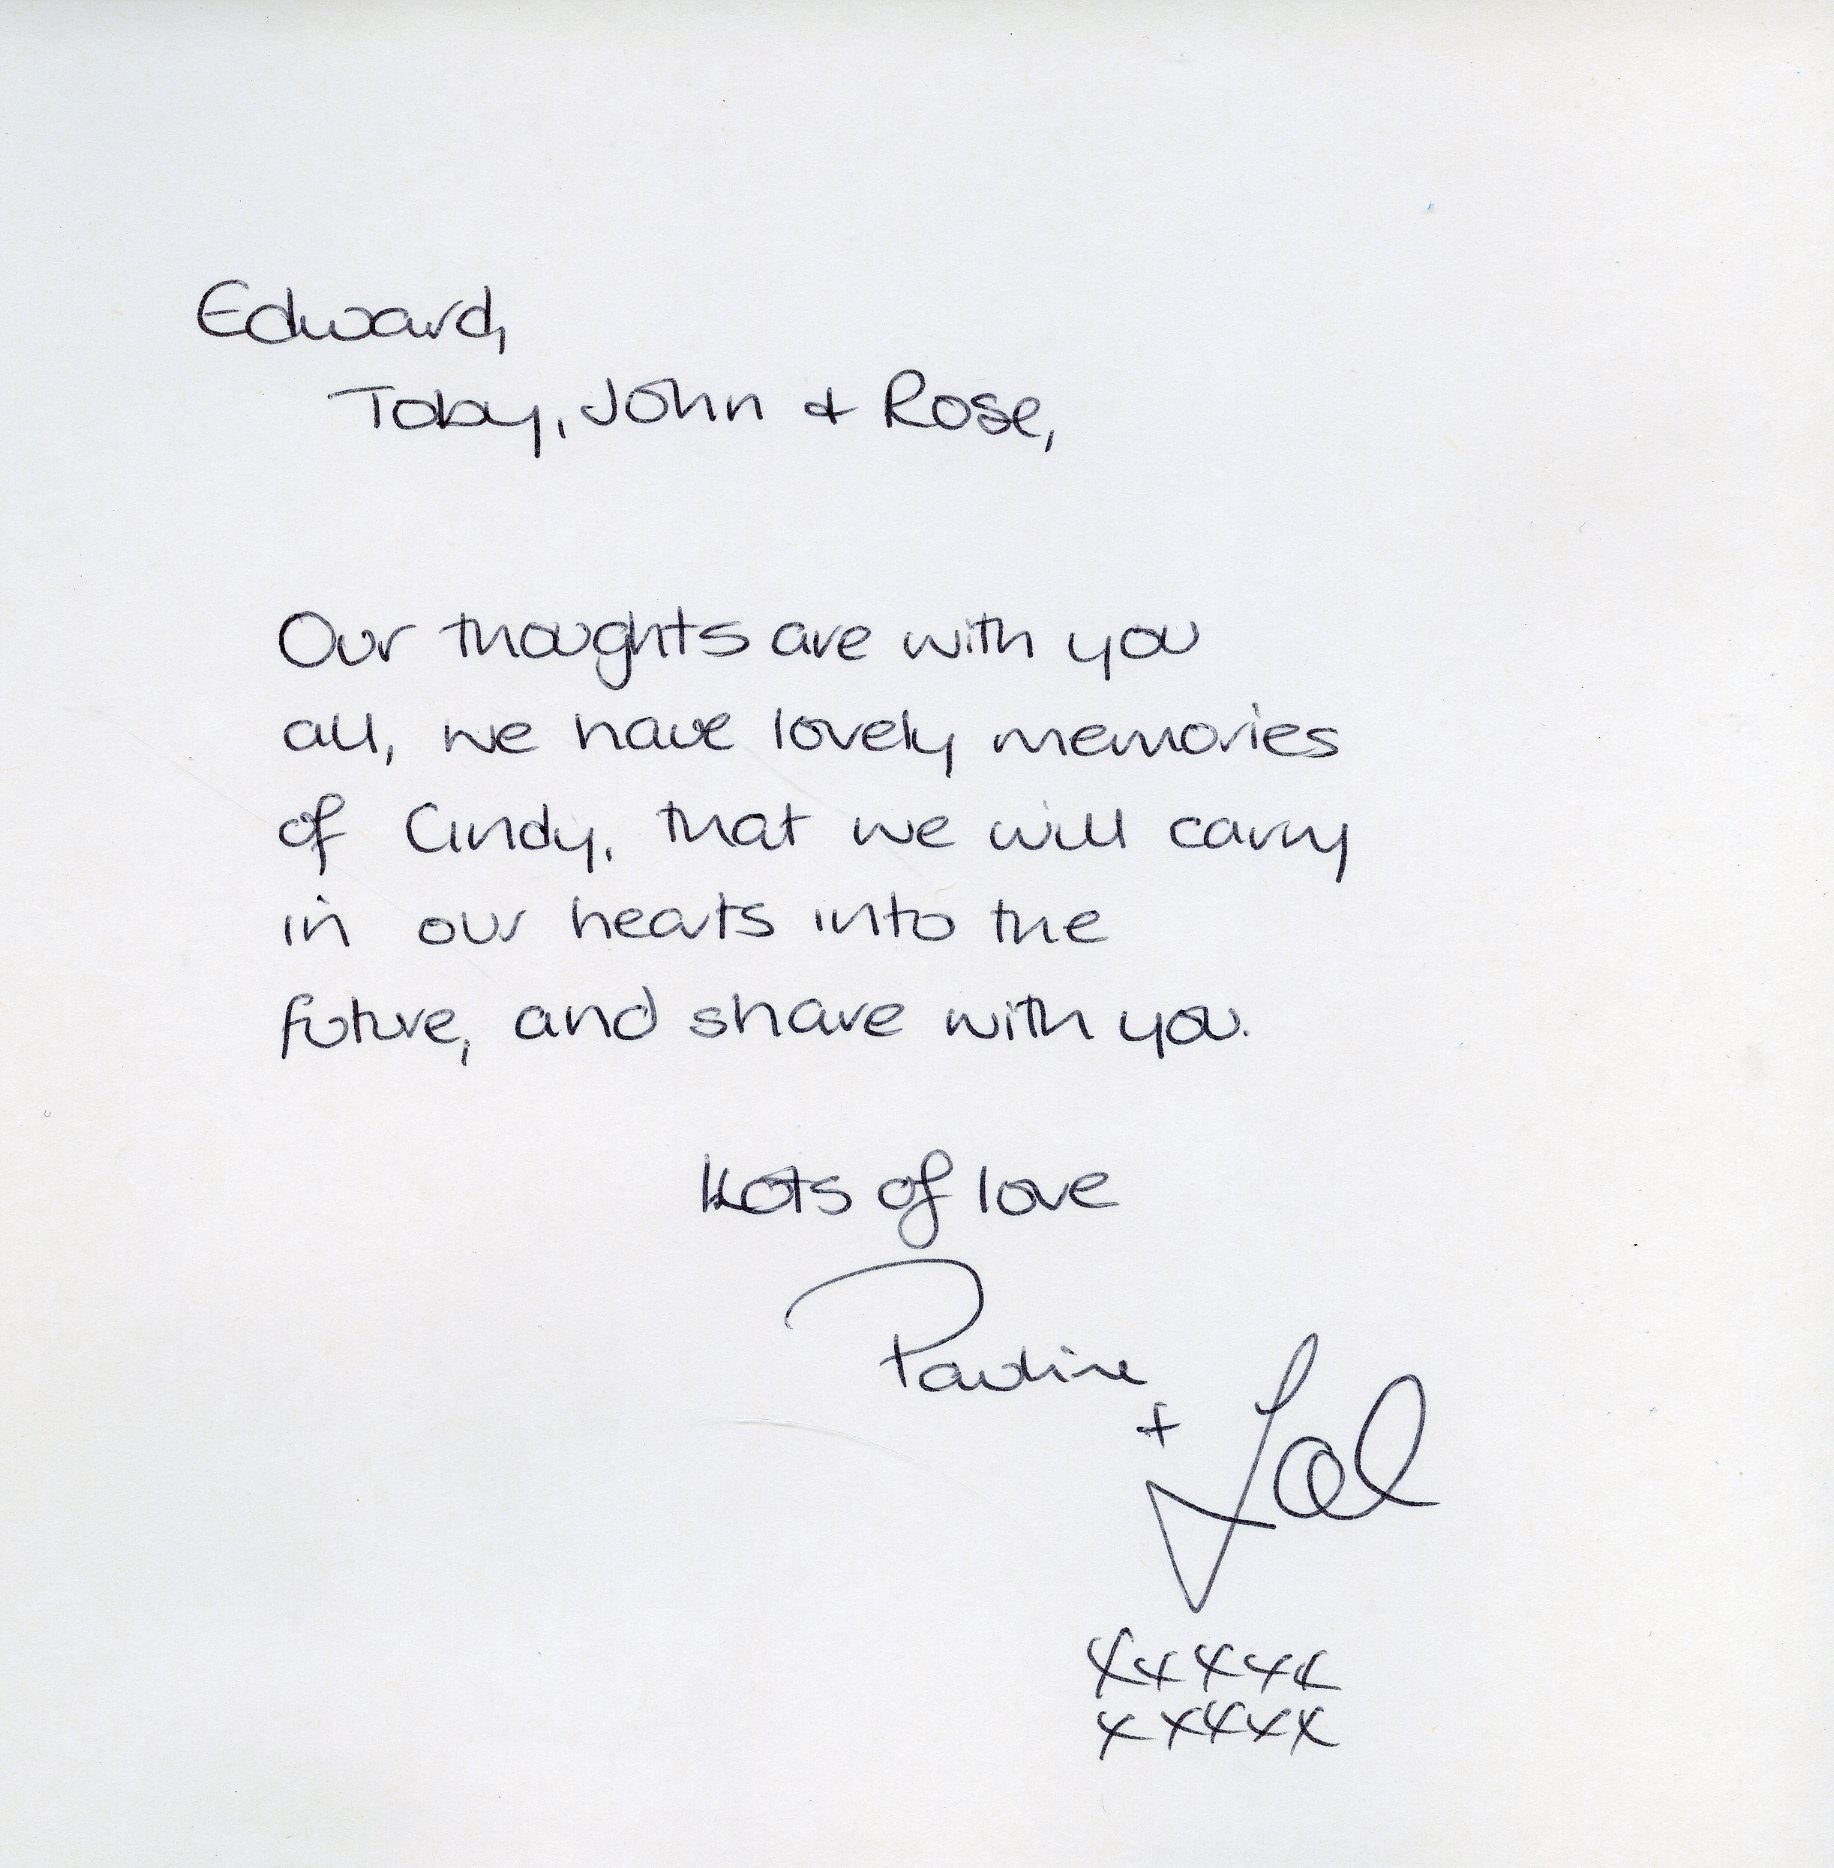 Edward,
Toby, John & Rose,
Our thoughts are with you
all, we have lovely memories
of Cindy, that we will carry
in our hearts into the
future, and share with you.
Lots of love
Pauline
+
xxxxx
xxxxx